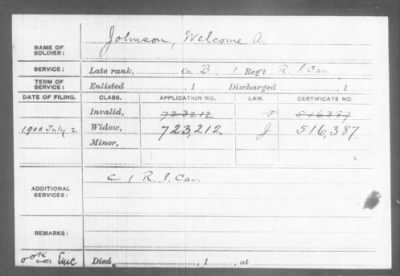 NAME OF SOLDIER: Johnson, Welcome A.
SERVICE: Late rank, Co. B, 1 Reg't R. I. Cav.
TERM OF SERVICE: Enlisted , 1 Discharged , 1
DATE OF FILING. CLASS. APPLICATION NO. LAW. CERTIFICATE NO.
Invalid, 723212 516387
1900 July 2 Widow, 723,212 J 516,387
Minor,
ADDITIONAL SERVICES: C 1 R. I. Cav.
Died , 1 , at